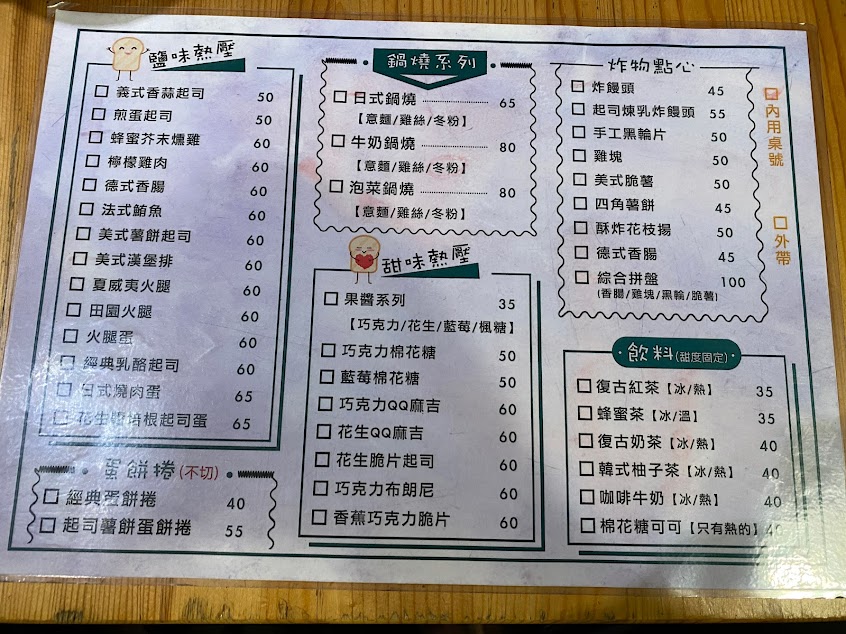 鹽味熱壓
義式香蒜起司 50
煎蛋起司 50
蜂蜜芥末燻雞 60
檸檬雞肉 60
德式香腸 60
法式鮪魚 60
美式薯餅起司 60
美式漢堡排 60
夏威夷火腿 60
田園火腿 60
火腿蛋 60
經典乳酪起司 60
日式燒肉蛋 65
花生培根起司蛋 65
蛋餅捲(不切)
經典蛋餅捲 40
起司薯餅蛋餅捲 55
鍋燒系列
日式鍋燒 65
【意麵/雞絲/冬粉】
牛奶鍋燒 80
【意麵/雞絲/冬粉】
泡菜鍋燒 80
【意麵/雞絲/冬粉】
甜味熱壓
果醬系列 35
【巧克力/花生/藍莓/楓糖】
巧克力棉花糖 50
藍莓棉花糖 50
巧克力QQ麻吉 60
花生QQ麻吉 60
花生脆片起司 60
巧克力布朗尼 60
香蕉巧克力脆片 60
炸物點心
炸饅頭 45
起司煉乳炸饅頭 55
手工黑輪片 50
雞塊 50
美式脆薯 50
四角薯餅 45
酥炸花枝揚 50
德式香腸 45
綜合拼盤 100
(香腸/雞塊/黑輪/脆薯)
飲料(甜度固定)
復古紅茶【冰/熱】 35
蜂蜜茶【冰/溫】 35
復古奶茶【冰/熱】 40
韓式柚子茶【冰/熱】 40
咖啡牛奶【冰/熱】 40
棉花糖可可【只有熱的】 40
內用桌號
外帶